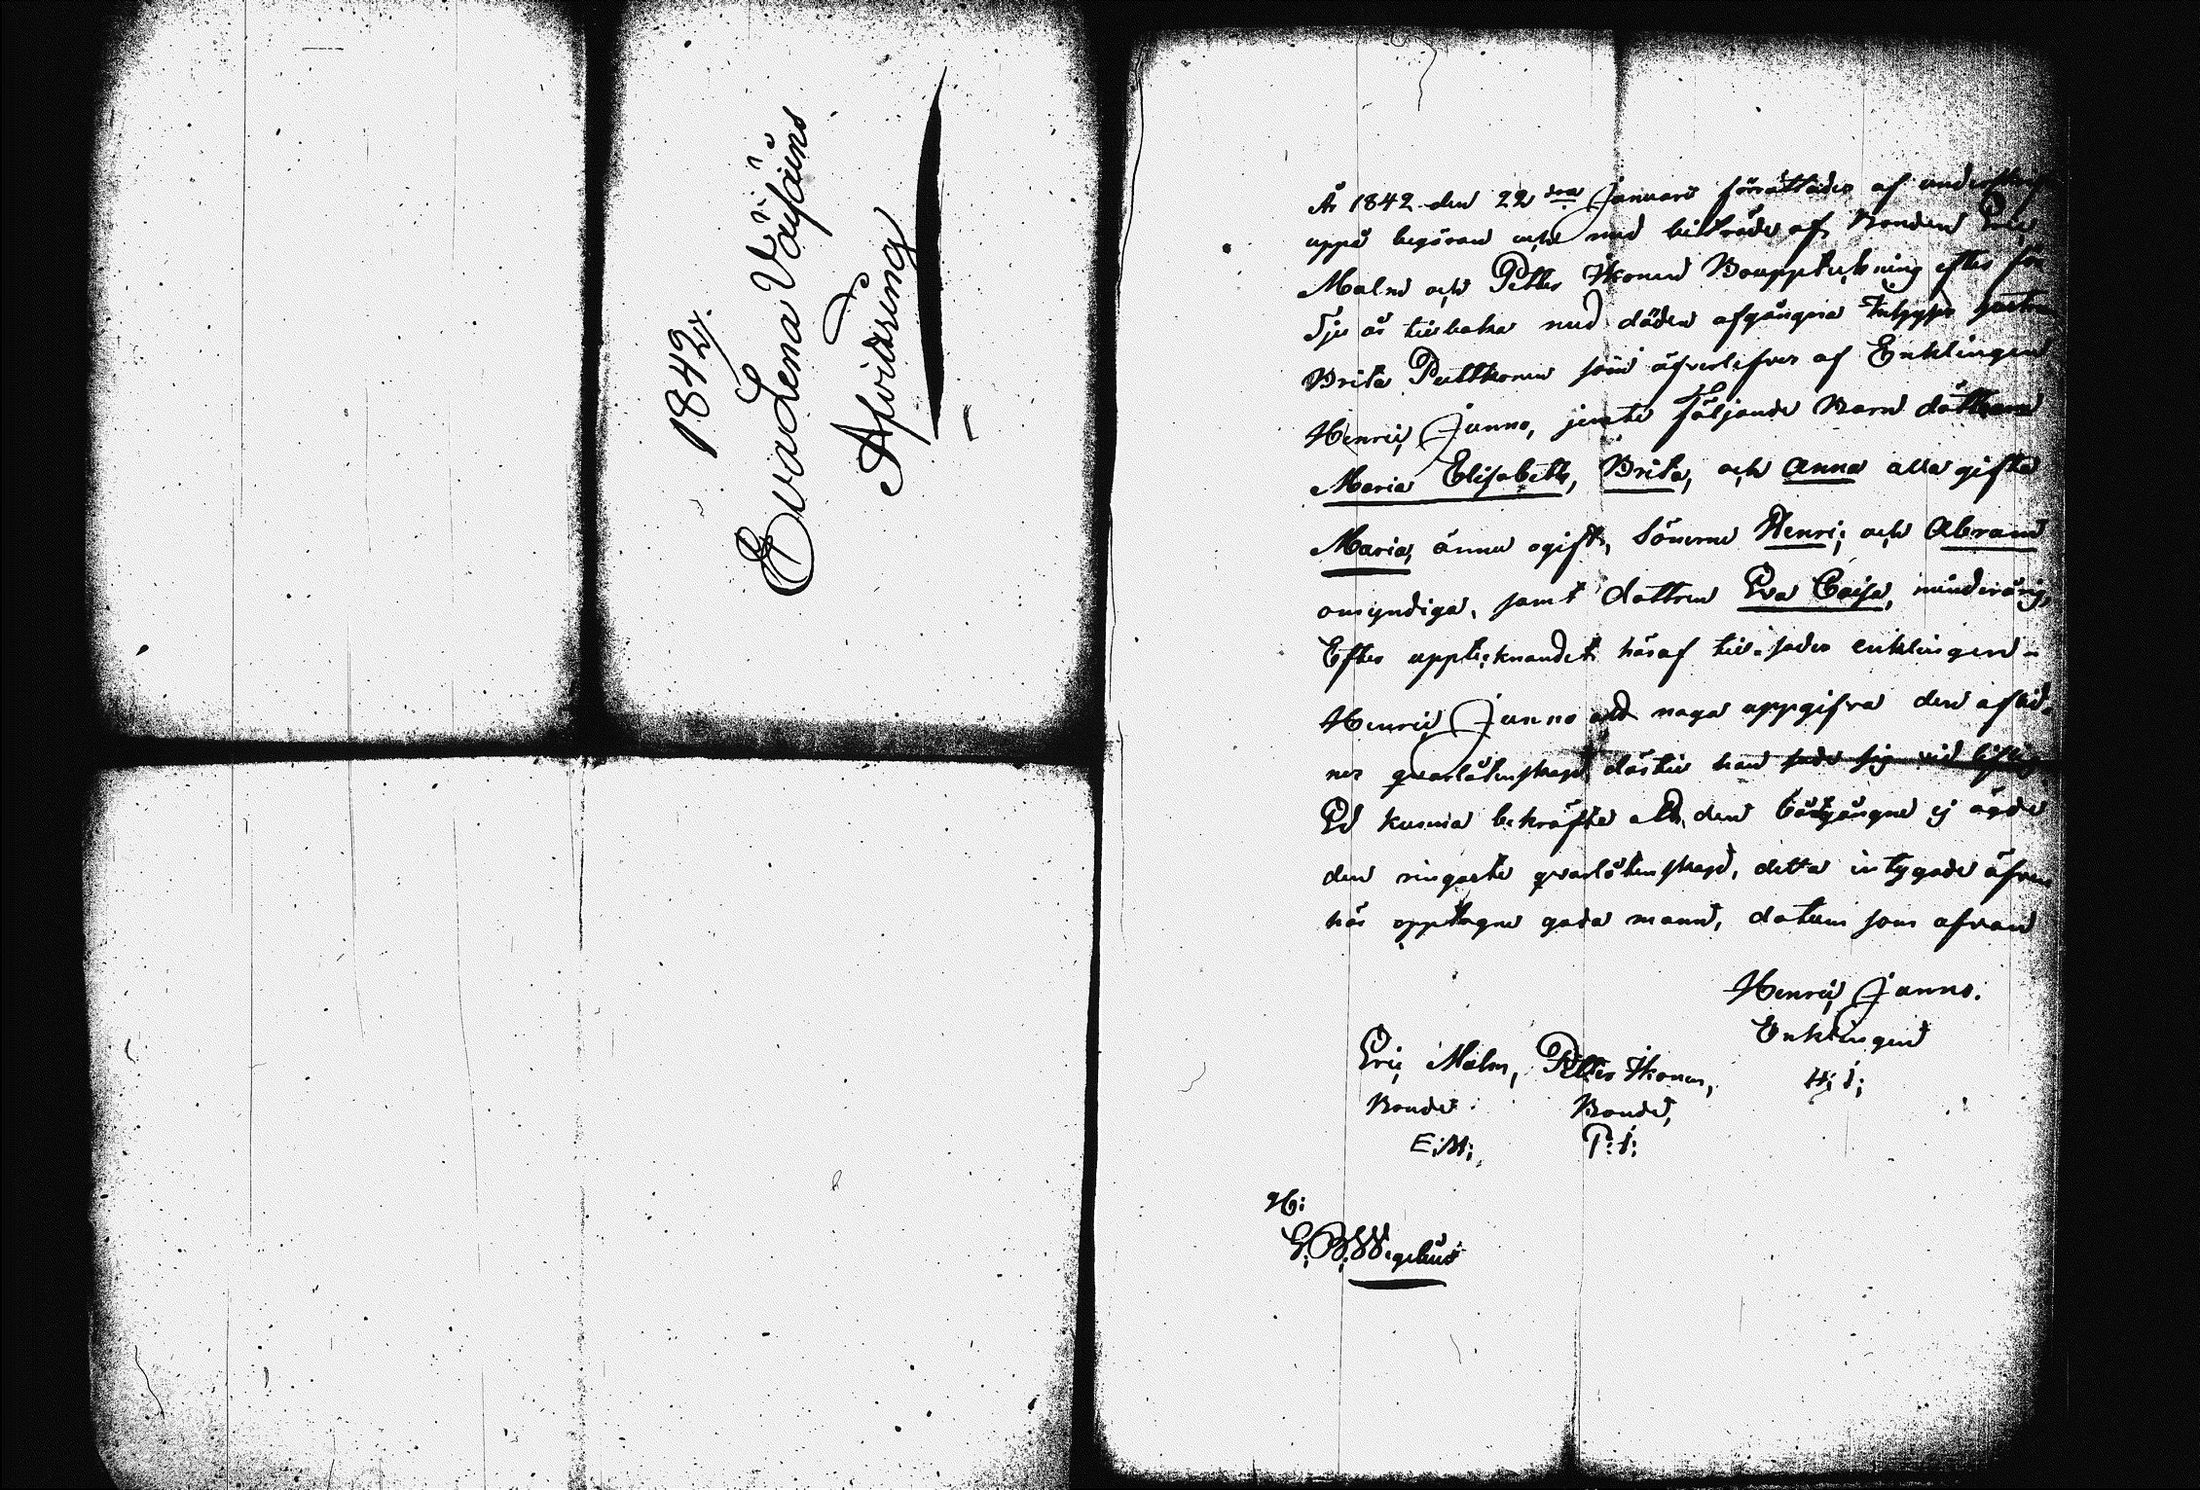 1842.
Eva Lena Väisäns
Afvidtring
År 1842 den 22dra Januari förrättades af
uppå begäran och med biträde af Bonden Eric
Malm och Petter Ikonen Bouppteckning efter för
Sju år tillbaka med döden afgångna Inhyses
Brita Pulkkonen som äfverlefves af Enklingen
Henric Junno, jemte följande Barn döttrarne
Maria Elisabeth, Brita, och Anna alla gifta
Maria, ännu ogift, Sönerne Henric och Abram
omyndiga, samt dottren Eva Caisa, minderårig,
Efter upptecknandet häraf till-sades enklingen-
Henric Junno att noga uppgifva den aflid-
nes qvarlåtenskap därtill han sade sig vid
Ed kunna bekräfta att den bårtgångne ej ägde
den ringaste qvarlåtenskap, detta intygade äfven
här opptagne goda mänd, datum som ofvan
Henric Junno.
Enklingen
H; J;
Eric Malm, Petter Ikonen,
Bonde Bonde,
E; M; P: I: